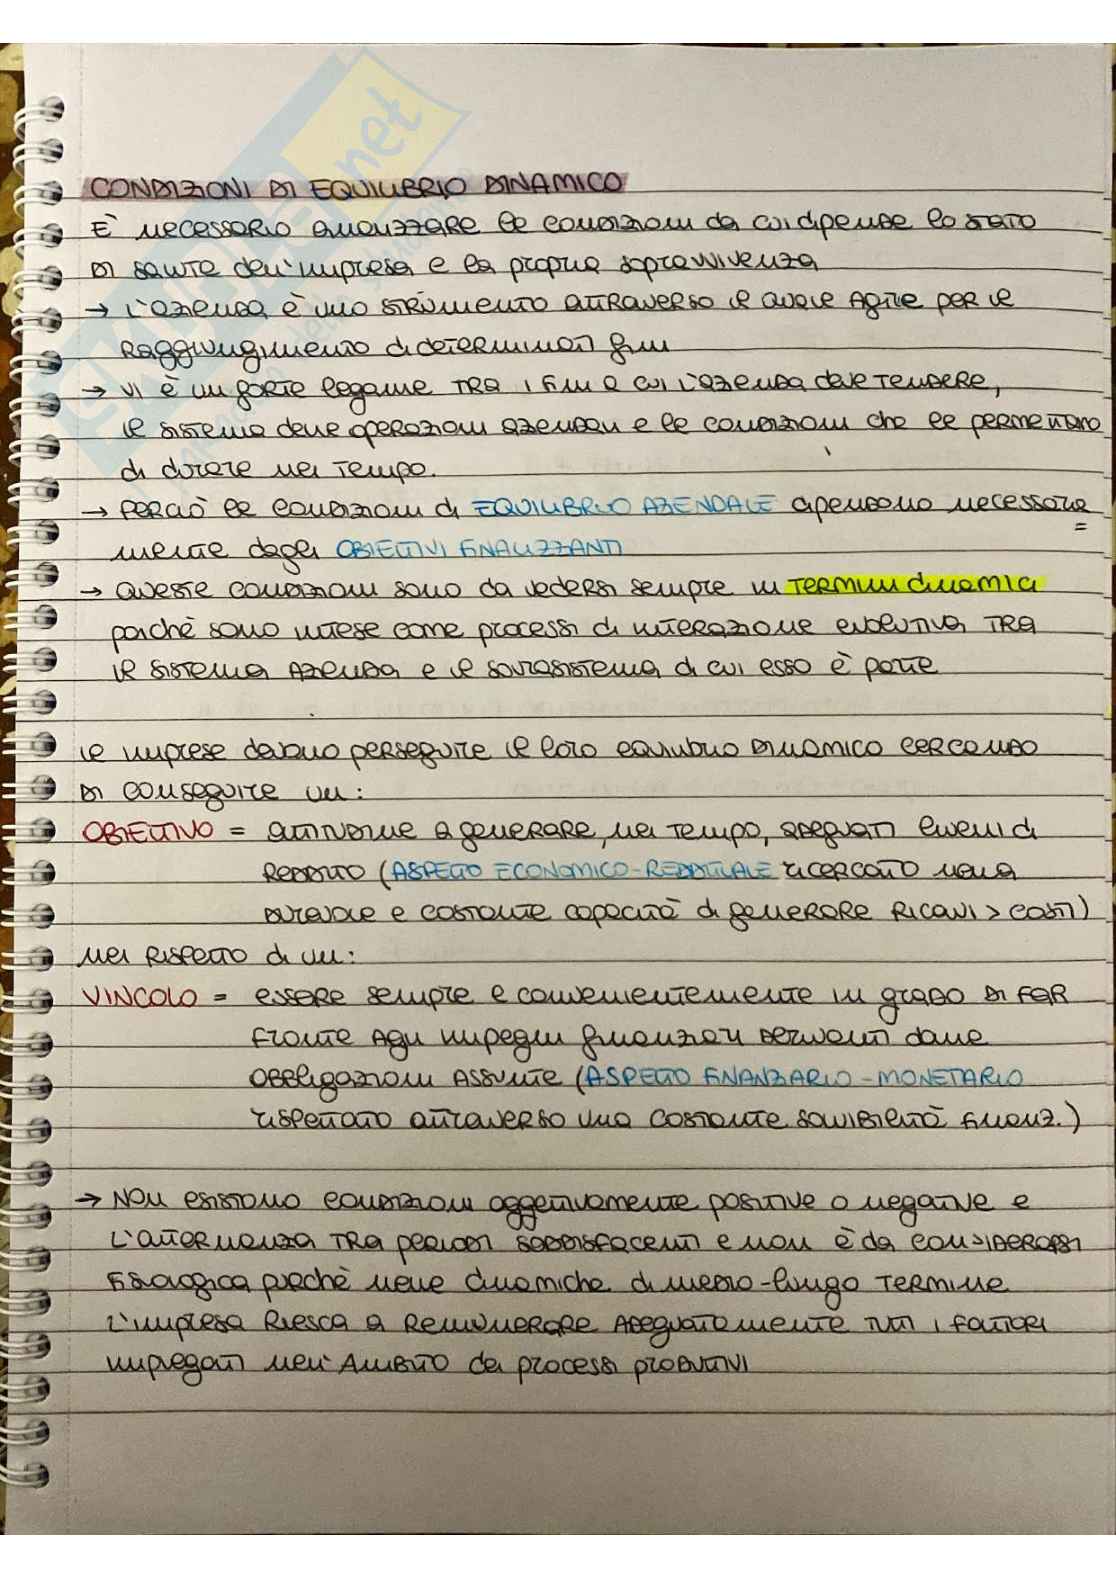 CONDIZIONI DI EQUILIBRIO DINAMICO
È necessario analizzare le condizioni da cui dipende lo stato
di salute dell'impresa e la propria sopravvivenza
→ L'azienda è uno strumento attraverso il quale agire per il
raggiungimento di determinati fini
→ Vi è un forte legame tra i fini a cui l'azienda deve tendere,
il sistema delle operazioni aziendali e le condizioni che le permettono
di durare nel tempo.
→ Perciò le condizioni di EQUILIBRIO AZIENDALE dipendono necessaria
=
mente dagli OBIETTIVI FINALIZZANTI
→ Queste condizioni sono da vedersi sempre in termini dinamici
poiché sono intese come processi di interazione evolutiva tra
il sistema azienda e il sovrasistema di cui esso è parte
Le imprese devono perseguire il loro equilibrio dinamico cercando
di conseguire un:
OBIETTIVO = attitudine a generare, nel tempo, adeguati livelli di
reddito (ASPETTO ECONOMICO-REDDITUALE ricercato nella
durevole e costante capacità di generare ricavi > costi)
nel rispetto di un:
VINCOLO = essere sempre e convenientemente in grado di far
fronte agli impegni finanziari derivanti dalle
obbligazioni assunte (ASPETTO FINANZIARIO-MONETARIO
rispettato attraverso una costante solvibilità finanz.)
→ Non esistono condizioni oggettivamente positive o negative e
l'alternanza tra periodi soddisfacenti e non è da considerarsi
fisiologica purchè nelle dinamiche di medio-lungo termine
l'impresa riesca a remunerare adeguatamente tutti i fattori
impiegati nell'ambito dei processi produttivi
.net